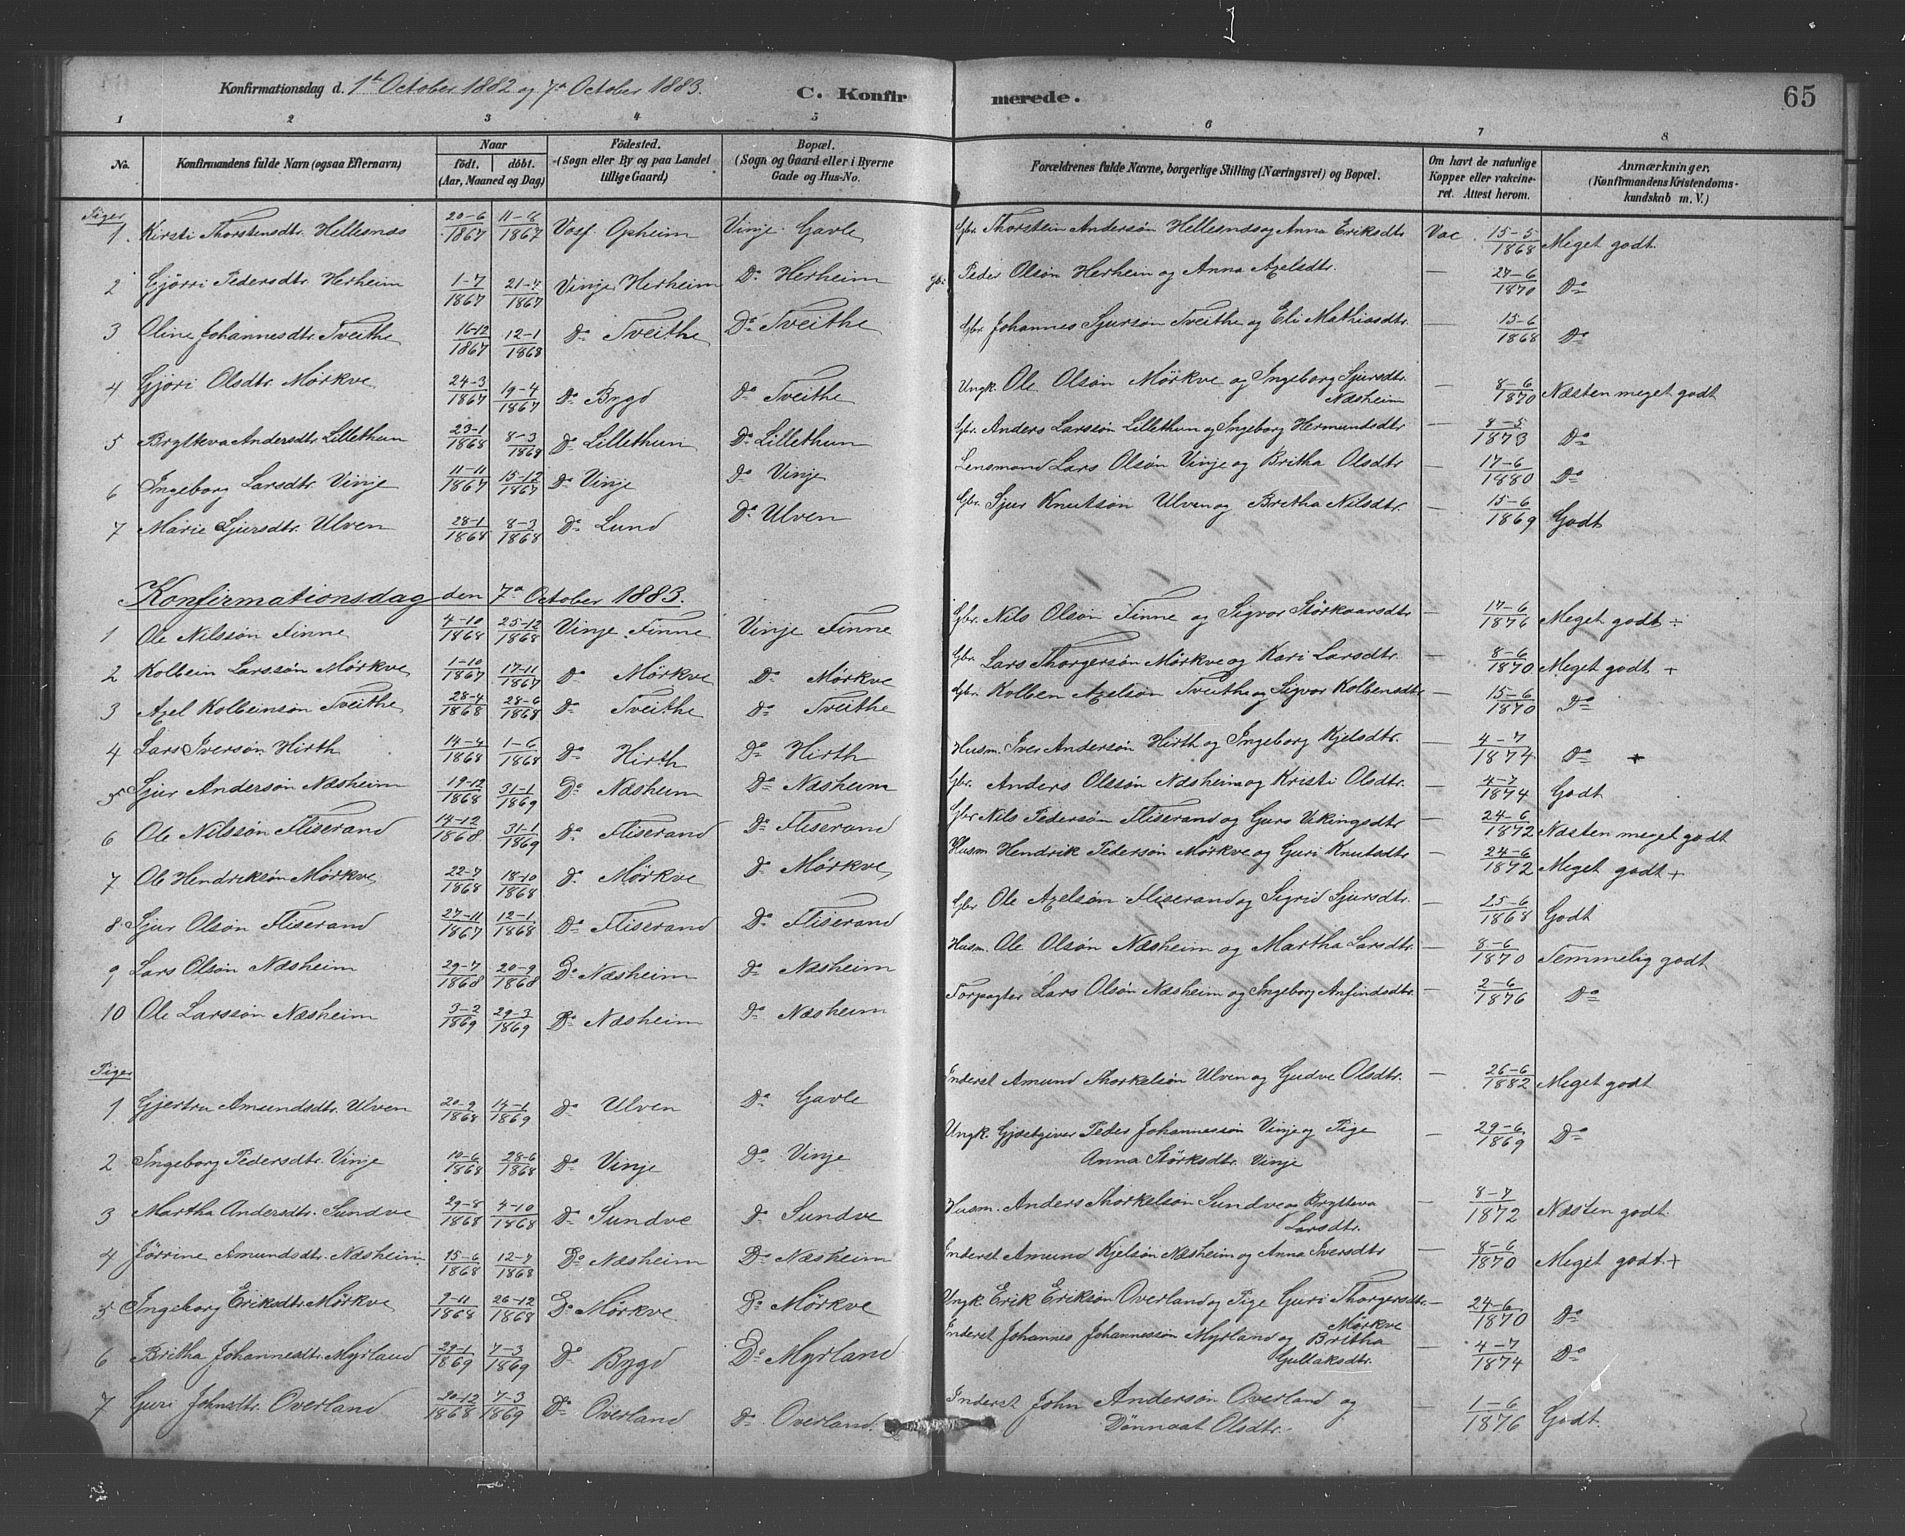 Konfirmationsdag d. 1ste October 1882 og 7de October 1883. C. Konfirmerede. 65
1 2 3 4 5 6 7 8
No. Konfirmandens fulde Navn (ogsaa Efternavn) Naar født. døbt. (Aar, Maaned og Dag) Födested. (Sogn eller By og paa Landet tillige Gaard) Bopæl. (Sogn og Gaard eller i Byerne Gade og Hus-No. Forældrenes fulde Navne, borgerlige Stilling (Næringsvei) og Bopæl. Om havt de naturlige Kopper eller vakcineret. Attest herom. Anmærkninger. (Konfirmandens Kristendomskundskab m. V.)
Piger
1 Kirsti Thorstensdtr Hellesnæs 20-6 1867 11-8 1867 Vosf. Opheim Vinje Gavle Gbr. Thorstein Andersøn Hellesnæs og Anna Eriksdtr Vac 15-5 1868 Meget godt
2 Gjörri Pedersdtr. Herheim 1-7 1867 21-7 1867 Vinje Herheim Do Herheim Gbr. Peder Olsøn Herheim og Anna Axelsdtr. — 27-6 1870 Do
3 Oline Johannesdtr. Tveithe 16-12 1867 12-1 1868 Do Tveithe Do Tveithe Gbr. Johannes Sjursøn Tveithe og Eli Mathiasdtr. — 15-6 1868 Do
4 Gjøri Olsdtr. Mørkve 24-3 1867 19-4 1867 Do Bygd Do Tveithe Ungk. Ole Olsøn Mørkve og Ingeborg Sjursdtr. Næsheim — 8-6 1870 Næsten meget godt
5 Brytteva Andersdtr. Lillethun 23-1 1868 8-3 1868 Do Lillethun Do Lillethun Gbr. Anders Larssøn Lillethun og Ingeborg Hermundsdtr — 8-5 1873 Do
6 Ingeborg Larsdtr. Vinje 11-11 1867 15-12 1867 Do Vinje Do Vinje Lensmand Lars Olsøn Vinje og Britha Olsdtr — 17-6 1880 Do
7 Marie Sjursdtr. Ulven 28-1 1868 8-3 1868 Do Lund Do Ulven Gbr. Sjur Knutsøn Ulven og Bretha Nilsdtr. — 15-6 1869 Godt
Konfirmationsdag den 7de October 1883.
1 Ole Nilssøn Finne 4-10 1868 25-12 1868 Vinje Finne Vinje Finne Gbr. Nils Olsøn Finne og Sigvor Störkaarsdtr — 17-6 1876 Meget godt ÷
2 Kolbein Larssøn Mørkve 1-10 1867 17-11 1867 Do Mørkve Do Mørkve Gbr. Lars Thorgersøn Mørkve og Kari Larsdtr. — 8-6 1870 Meget godt +
3 Axel Kolbeinsøn Tveithe 28-4 1868 28-6 1868 Do Tveithe Do Tveithe Gbr. Kolben Axelsøn Tveithe og Sigvor Kolbensdtr — 15-6 1870 Do
4 Lars Iversøn Hirth 14-4 1868 1-6 1868 Do Hirth Do Hirth Husm. Iver Andersøn Hirth og Ingeborg Kjelsdtr. — 4-7 1874 Do +
5 Sjur Andersøn Næsheim 19-12 1868 31-1 1869 Do Næsheim Do Næsheim Gbr. Anders Olssøn Næsheim og Kristi Olsdtr. — 4-7 1874 Godt
6 Ole Nilssøn Fliserand 14-12 1868 31-1 1869 Do Fliserand Do Fliserand Gbr Nils Pedersøn Fliserand og Guro Vikingsdtr — 24-6 1872 Næsten meget godt
7 Ole Hendriksøn Mørkve 22-7 1868 18-10 1868 Do Mørkve Do Mørkve Husm Hendrik Pedersøn Mørkve og Guri Knutsdtr — 24-6 1872 Meget godt +
8 Sjur Olsøn Fliserand 27-11 1867 12-1 1868 Do Fliserand Do Fliserand Gbr Ole Axelsøn Fliserand og Sigrid Sjursdtr. — 25-6 1868 Godt
9 Lars Olsøn Næsheim 29-7 1868 20-9 1868 Do Næsheim Do Næsheim Husm. Ole Olsøn Næsheim og Martha Larsdtr. — 8-6 1870 Temmelig godt
10 Ole Larssøn Næsheim 3-2 1869 29-3 1869 Do Næsheim Do Næsheim Forpagter Lars Olsøn Næsheim og Ingeborg Anfindsdtr. — 2-6 1876 Do
Piger
1 Gjertru Amundsdtr. Ulven 20-9 1868 14-1 1869 Do Ulven Do Gavle Inderst Amund Thorkelsøn Ulven og Gudve Olsdtr. — 26-6 1882 Meget godt
2 Ingeborg Pedersdtr. Vinje 10-6 1868 28-6 1868 Do Vinje Do Vinje Ungk. Gjæstgiver Peder Johannessøn Vinje og Pige Anna Störksdtr. Vinje — 29-6 1869 Do
3 Martha Andersdtr. Sundve 29-8 1868 4-10 1868 Do Sundve Do Sundve Husm. Anders Thorkelsøn Sundve og Brytteva Larsdtr. — 8-7 1872 Næsten godt
4 Jørrine Amundsdtr. Næsheim 15-6 1868 12-7 1868 Do Næsheim Do Næsheim Inderst Amund Kjelsøn Næsheim og Anna Iversdtr — 8-6 1870 Meget godt +
5 Ingeborg Eriksdtr. Mörkve 9-11 1868 26-12 1868 Do Mörkve Do Mörkve Ungk Erik Eriksøn Overland og Pige Guri Thorgersdtr Mørkve — 24-6 1870 Do
6 Britha Johannesdtr. Myrland 29-1 1869 7-3 1869 Do Bygd Do Myrland Inderst Johannes Johannessøn Myrland og Britha Gullaksdtr. — 4-7 1874 Do
7 Guri Johnsdtr. Overland 20-12 1868 7-3 1869 Do Overland Do Overland Inderst John Andersøn Overland og Dönnaat Olsdtr. — 1-6 1876 Godt